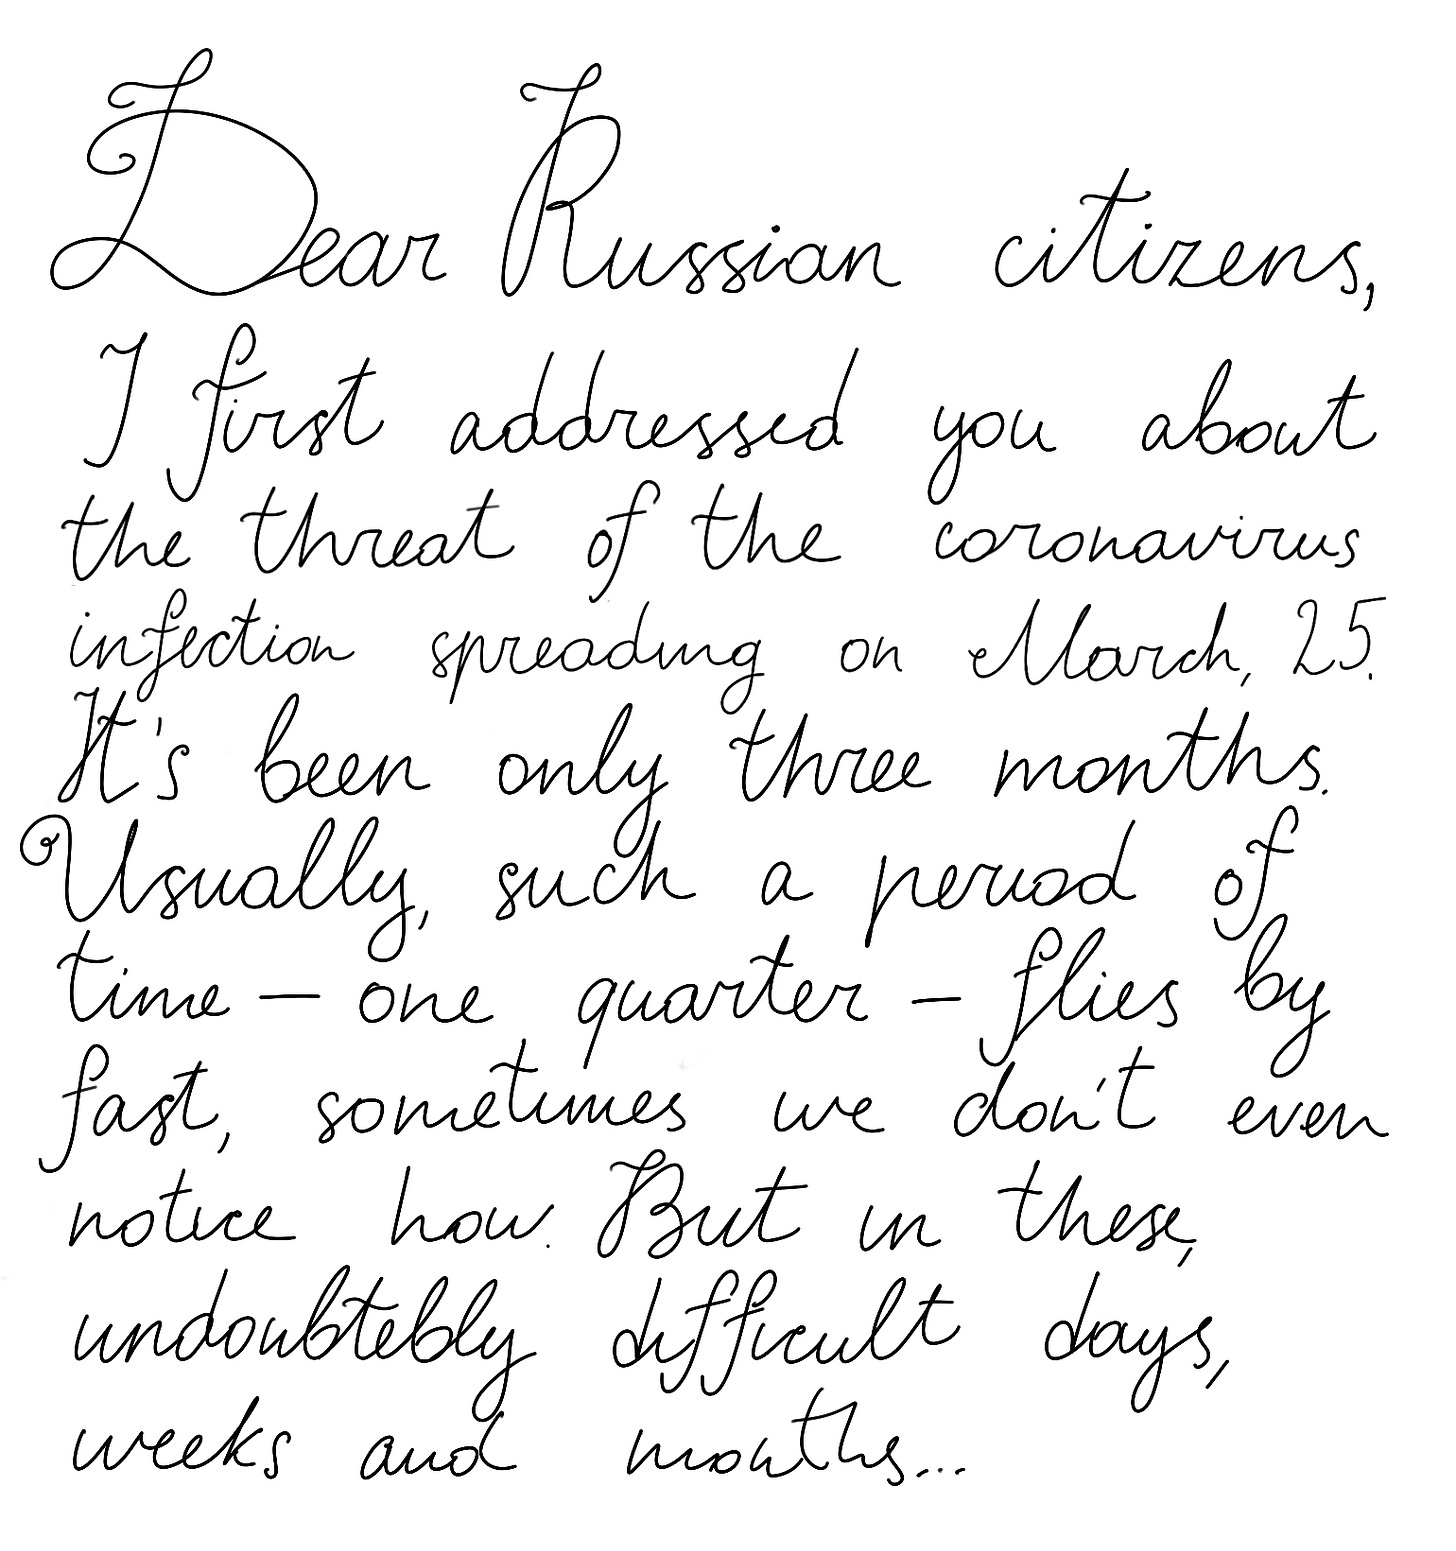 Dear Russian citizens,
I first addressed you about
the threat of the coronavirus
infection spreading on March, 25.
It's been only three months.
Usually, such a period of
time – one quarter – flies by
fast, sometimes we don't even
notice how. But in these,
undoubtebly difficult days,
weeks and months...